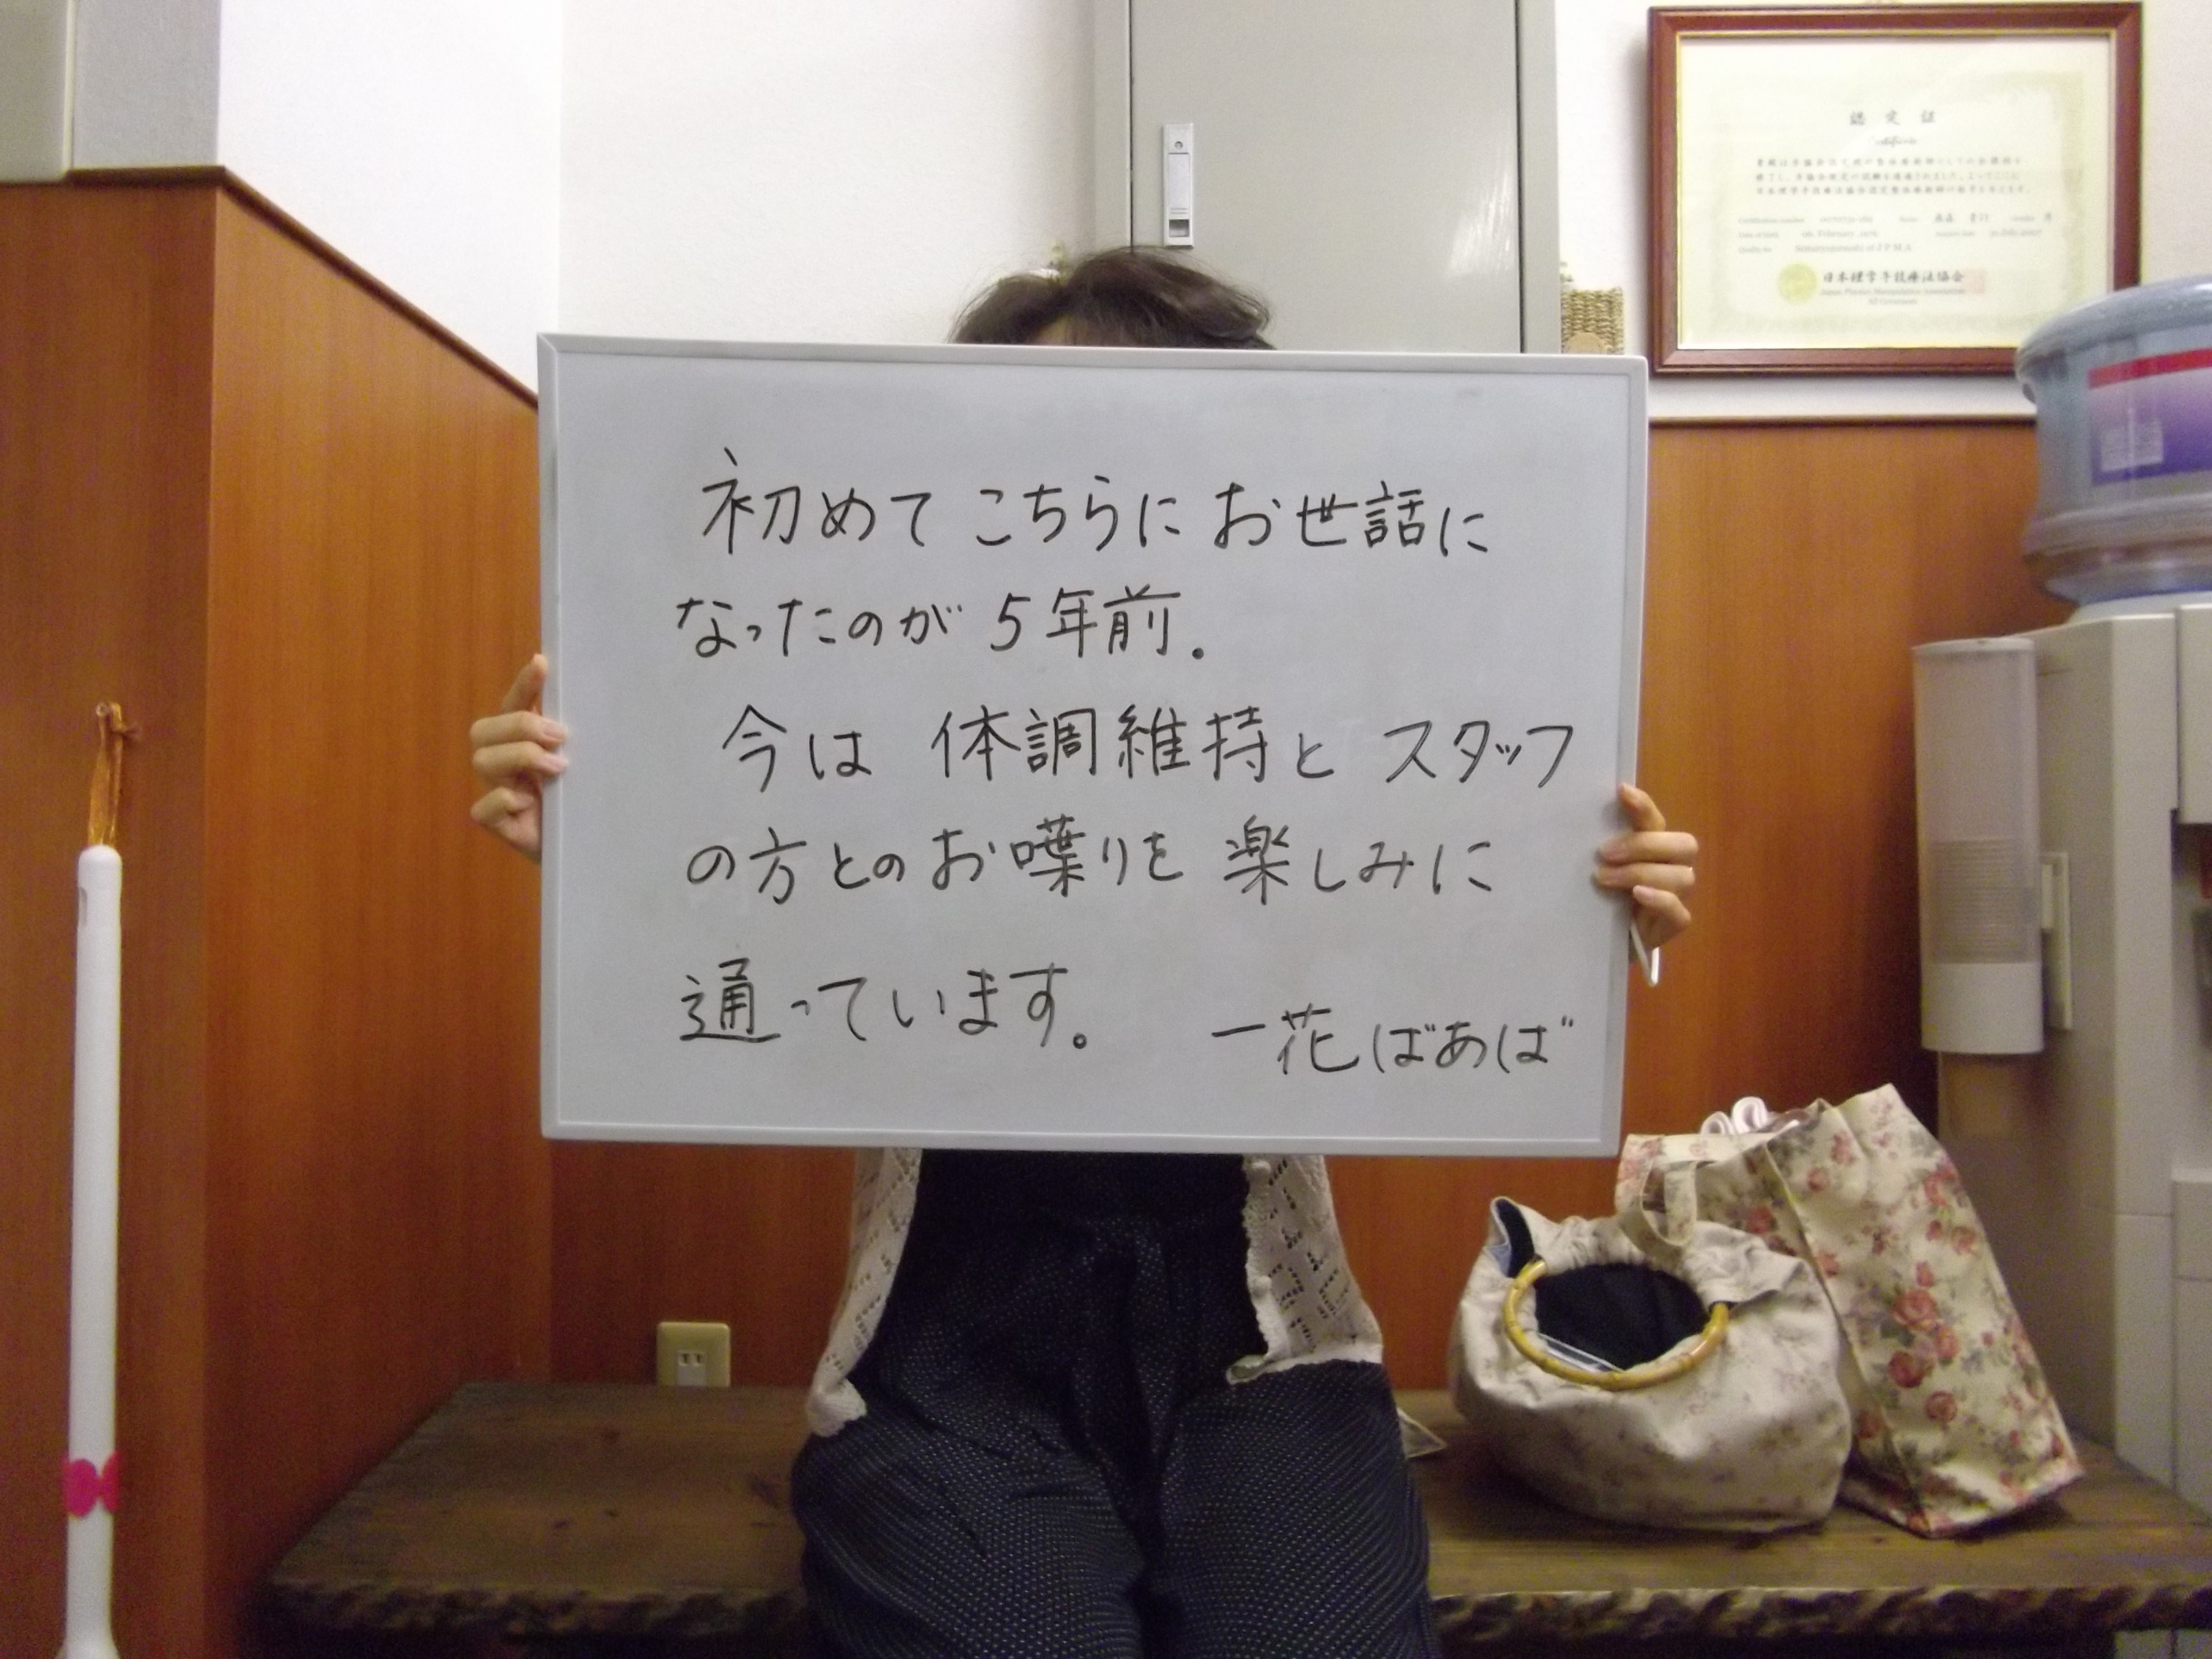 初めて こちらに お世話に
なったのが 5年前。
今は 体調維持と スタッフ
の方との お喋りを 楽しみに
通っています。
一花ばあば
認定証
日本理学手技療法協会